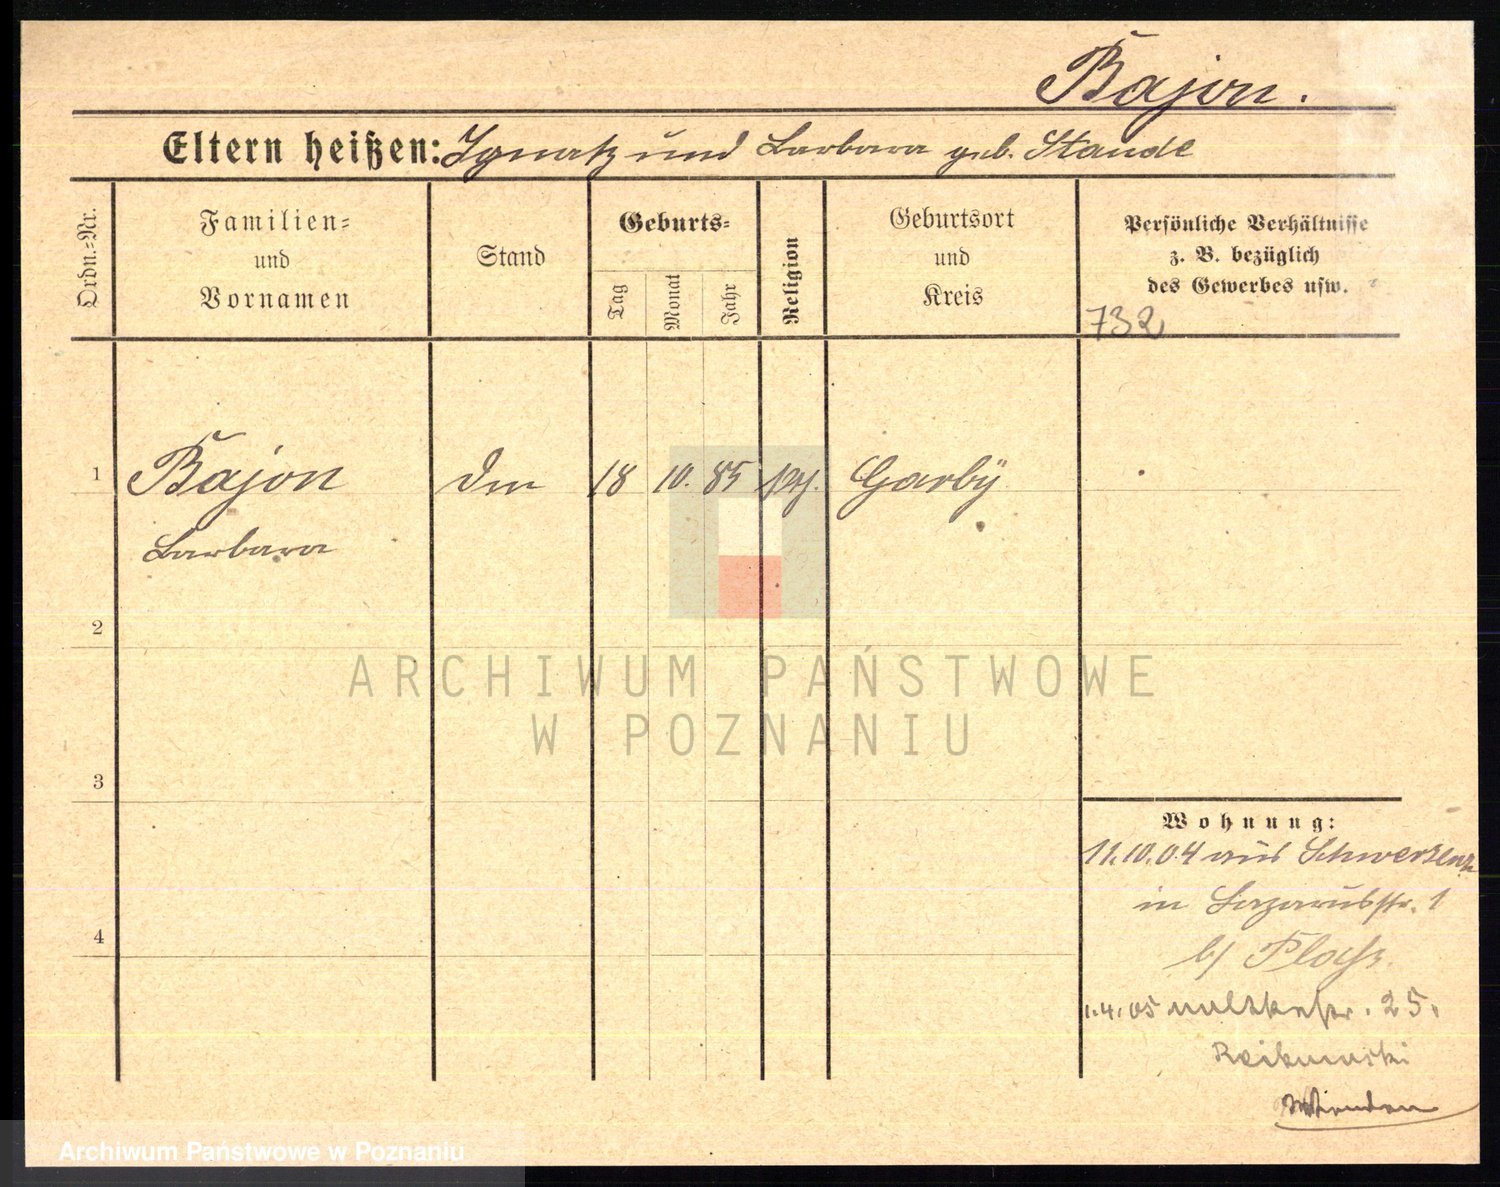 Bajon.
Eltern heißen: Ignatz und Barbara geb. Staude
Ordn.=Nr.
Familien=
und
Vornamen
Stand
Geburts=
Tag
Monat
Jahr
Religion
Geburtsort
und
Kreis
Persönliche Verhältnisse
z. B. bezüglich
des Gewerbes usw.
732
1 Bajon 18 10. 85 Garby
Barbara
2
ARCHIWUM PAŃSTWOWE
W POZNANIU
3
Wohnung:
11.10.04 aus Schwersenz
in Lazarusstr. 1
b/
4
1.4.05 25.
Archiwum Państwowe w Poznaniu